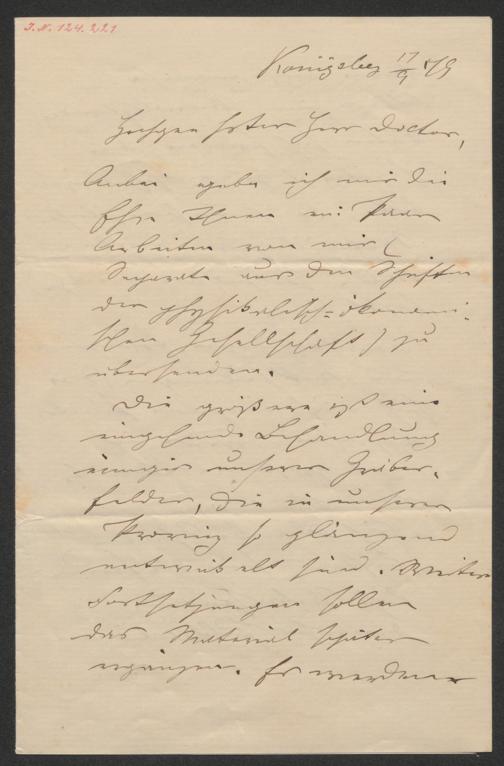 J. N. 124.221
Königsberg 17/9 79
Hochgeehrter Herr Doctor,
Anbei gebe ich mir die
Ehre Ihnen ein Paar
Arbeiten von mir (
Separate aus den Schriften
der physikalisch-ökonomi-
schen Gesellschaft) zu
übersenden.
Die größere ist eine
eingehende Behandlung
einiger unserer Gräber-
felder, die in unserer
Provinz so glänzend
entwickelt sind. Weitere
Fortsetzungen sollen
das Material später
ergänzen. Es werden